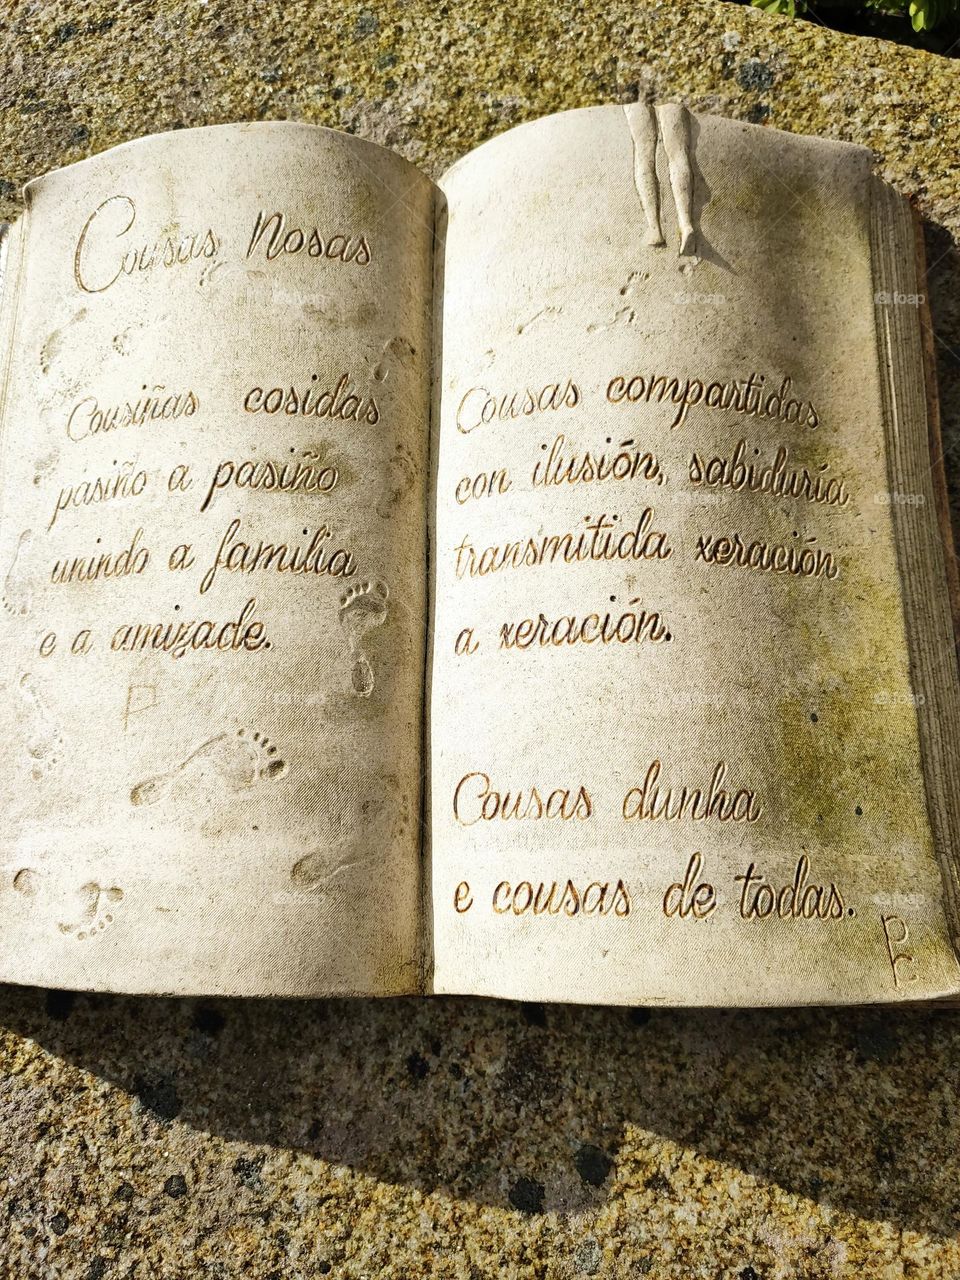 Cousas Nosas
Cousiñas cosidas
pasiño a pasiño
unindo a familia
e a amizade.
P
Cousas compartidas
con ilusión, sabiduría
transmitida xeración
a xeración.
Cousas dunha
e cousas de todas.